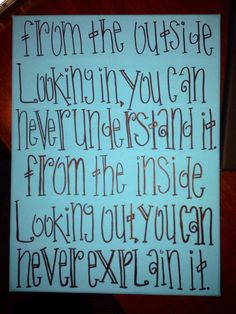 from the outside
Looking in, you can
never understand it.
from the inside
Looking out, you can
never explain it.